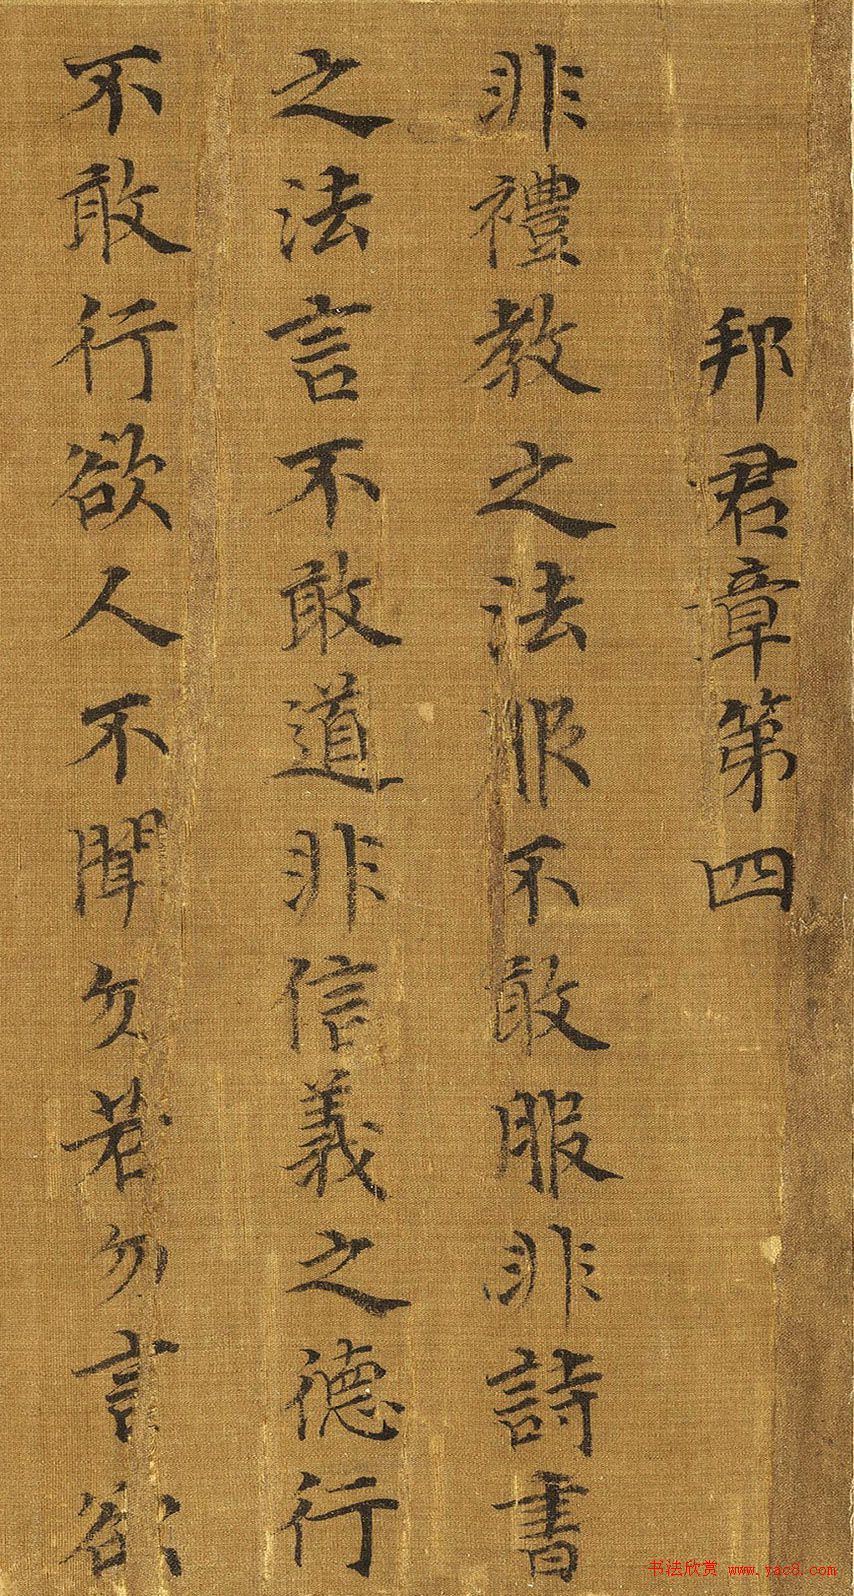 邦君章第四
非禮教之法服不敢服非詩書
之法言不敢道非信義之德行
不敢行欲人不聞勿若勿言欲
书法欣赏 www.yac8.com